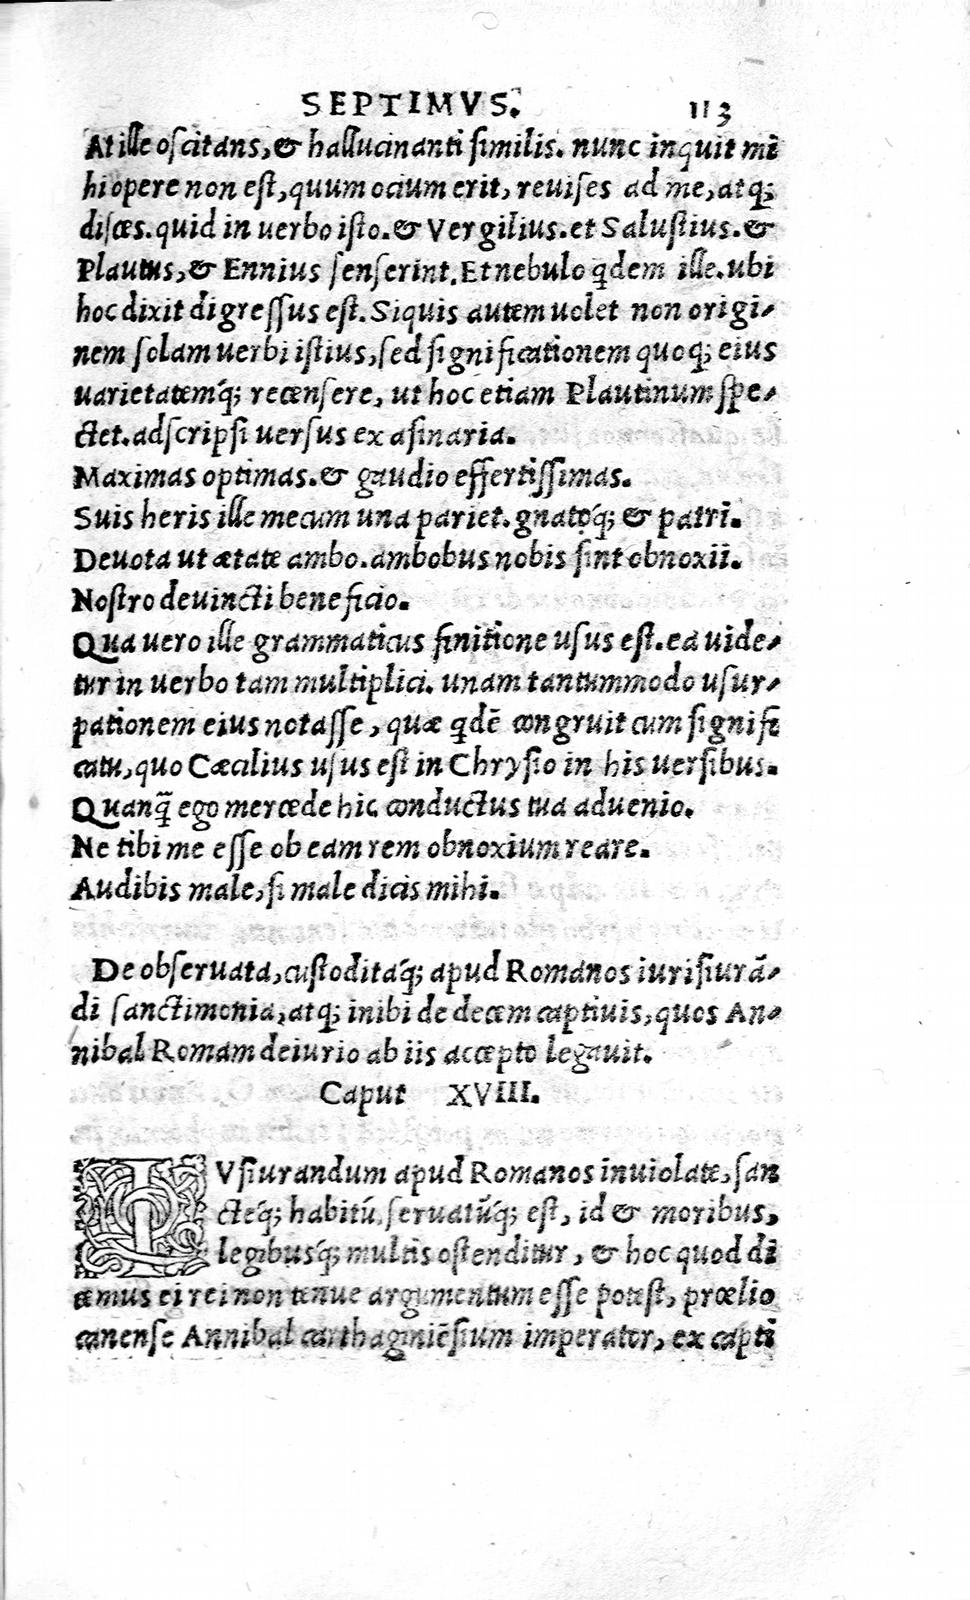 SEPTIMVS. 113
At ille oscitans, & hallucinanti similis. nunc inquit mi
hi opere non est, quum ocium erit, reuises ad me, atq;
disces. quid in uerbo isto. & Vergilius. et Salustius. &
Plautus, & Ennius senserint. Et nebulo qdem ille. ubi
hoc dixit digressus est. Siquis autem uolet non origi-
nem solam uerbi istius, sed significationem quoq; eius
uarietatemq́; recensere, ut hoc etiam Plautinum spe-
ctet. adscripsi uersus ex asinaria.
Maximas optimas. & gaudio effertissimas.
Suis heris ille mecum una pariet. gnatoq́; & patri.
Deuota ut ætate ambo. ambobus nobis sint obnoxii.
Nostro deuincti beneficio.
Qua uero ille grammaticus finitione usus est. ea uide-
tur in uerbo tam multiplici. unam tantummodo usur-
pationem eius notasse, quæ qdē congruit cum signifi
catu, quo Cæcilius usus est in Chrysio in his uersibus.
Quanq̄ ego mercede hic conductus tua aduenio.
Ne tibi me esse ob eam rem obnoxium reare.
Audibis male, si male dicis mihi.
De obseruata, custoditaq́; apud Romanos iurisiurā-
di sanctimonia, atq; inibi de decem captiuis, quos An-
nibal Romam deiurio ab iis accepto legauit.
Caput XVIII.
IVsiurandum apud Romanos inuiolate, san
cteq́; habitū, seruatūq́; est, id & moribus,
legibusq́; multis ostenditur, & hoc quod di
cemus ei rei non tenue argumentum esse potest, prœlio
canense Annibal carthaginiēsium imperator, ex capti